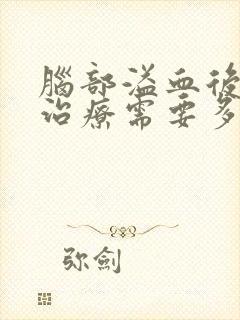 腦部溢血後
治療需要多
弥劍